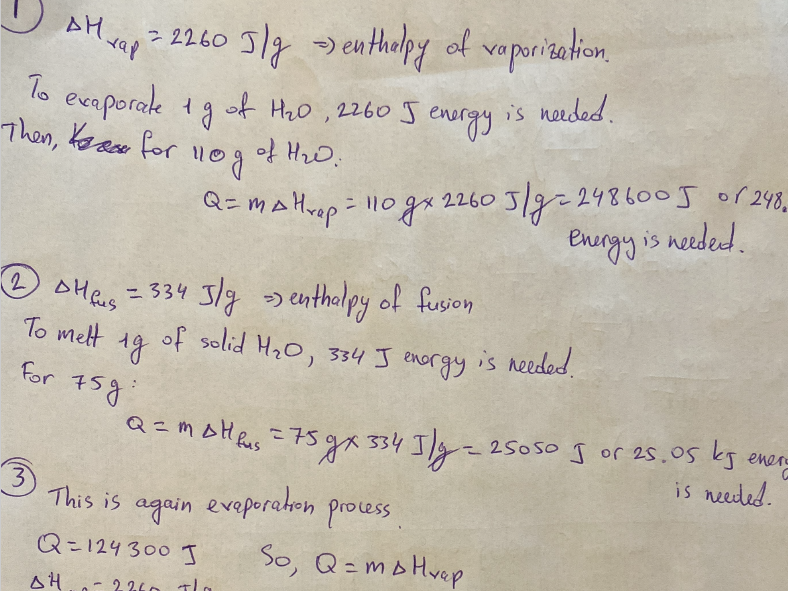 1) ΔHvap = 2260 J/g => enthalpy of vaporization.
To evaporate 1 g of H2O, 2260 J energy is needed.
Then, for 110 g of H2O:
Q = m ΔHvap = 110 g x 2260 J/g = 248600 J or 248.
energy is needed.
2 ΔHfus = 334 J/g => enthalpy of fusion
To melt 1g of solid H2O, 334 J energy is needed.
For 75g:
Q = m ΔHfus = 75 g x 334 J/g = 25050 J or 25.05 kJ energ
is needed.
3 This is again evaporation process.
Q = 124300 J So, Q = m ΔHvap
ΔH = 2260 J/g